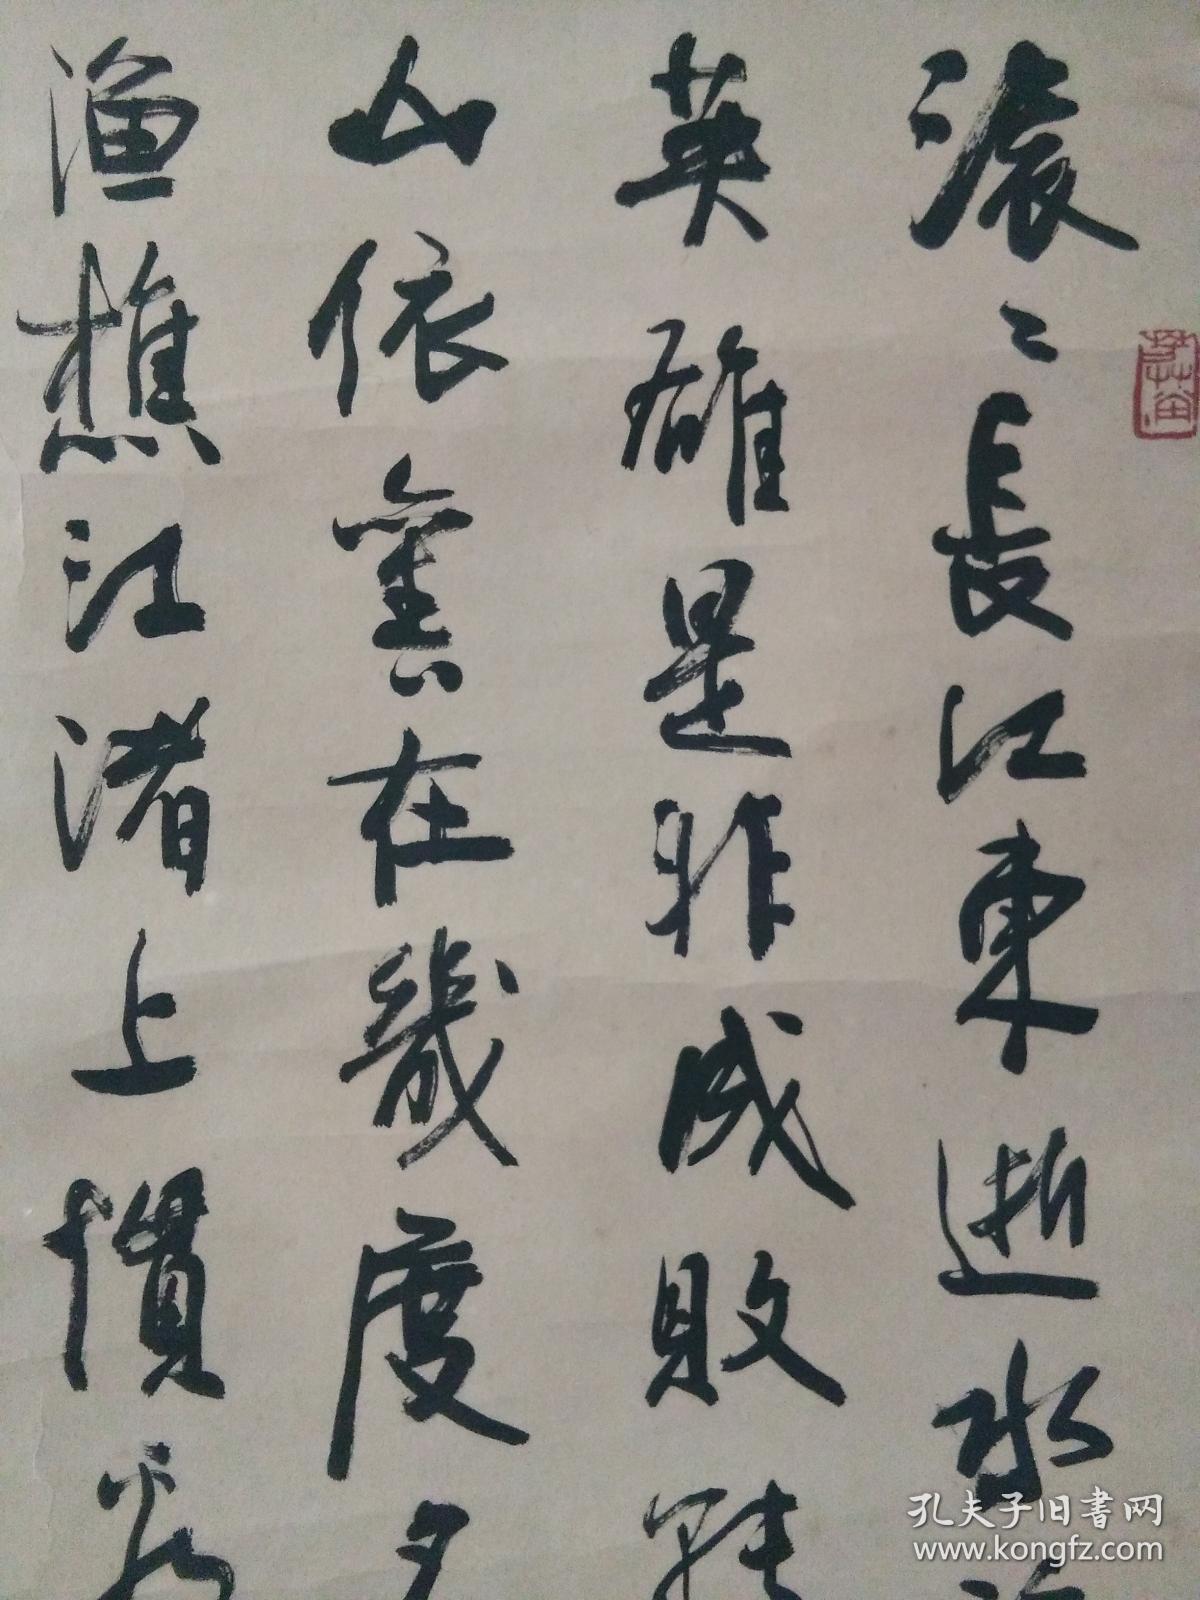 滾〻長江東逝水
英雄是非成敗轉
山依舊在幾度夕
漁樵江渚上慣看
孔夫子旧書网
www.kongfz.com